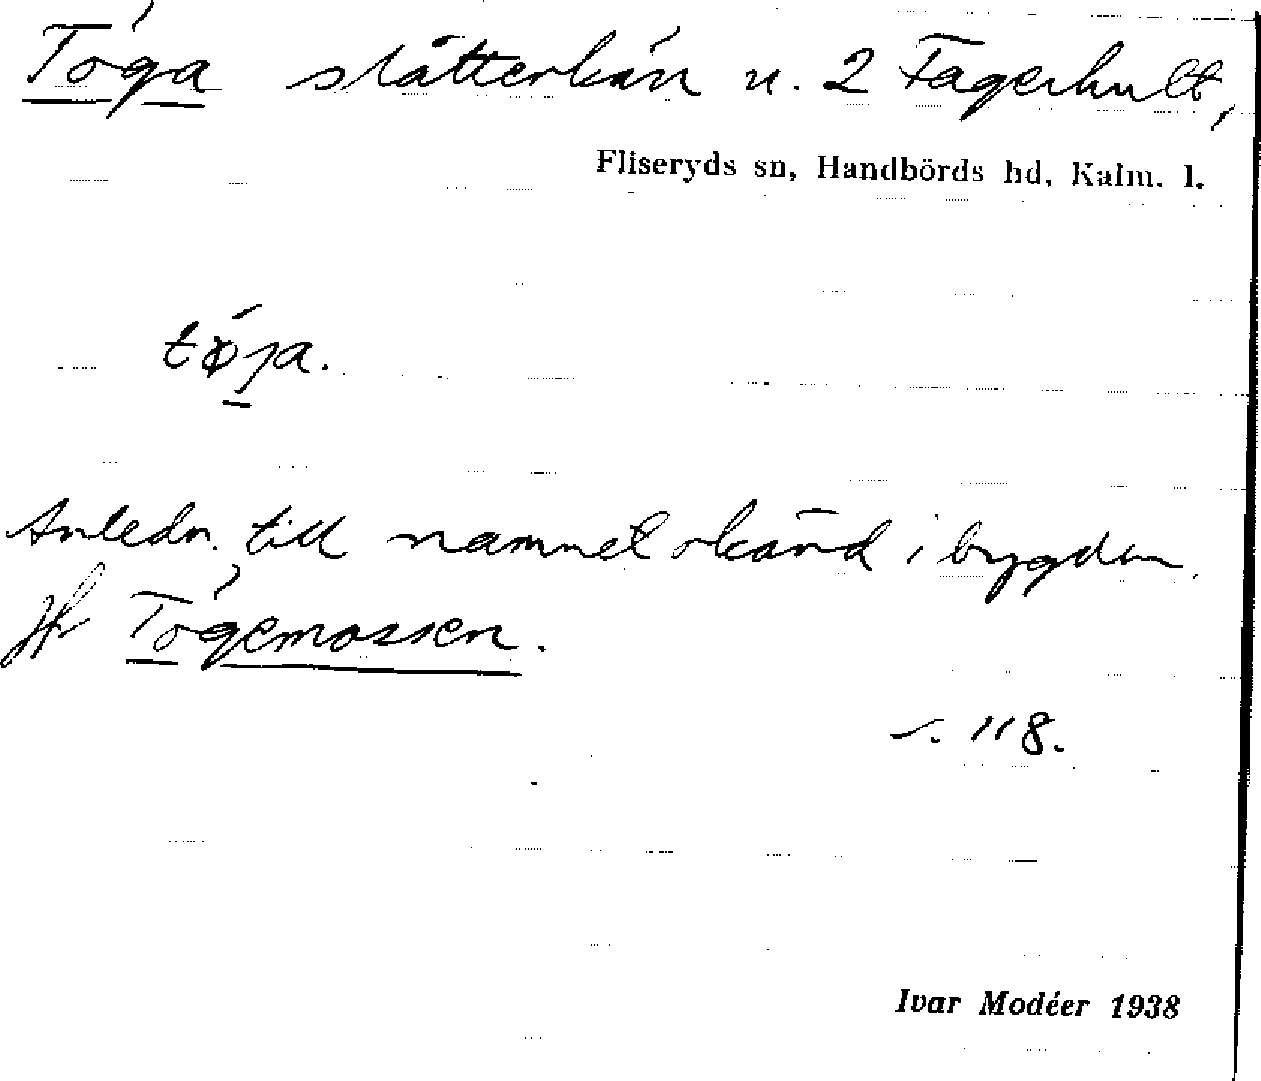 Tóga slåtterkärr u. 2 Fagerhult,
Fliseryds sn, Handbörds hd, Kalm. l.
tǿja.
Anledn. till namnet okänd i bygden.
Jfr Tógemossen.
s. 118.
Ivar Modéer 1938